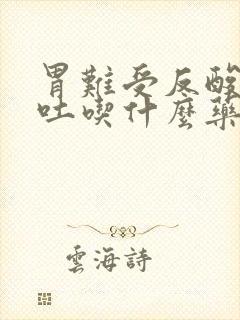 胃難受反酸
吐喫什麼藥
雲海詩